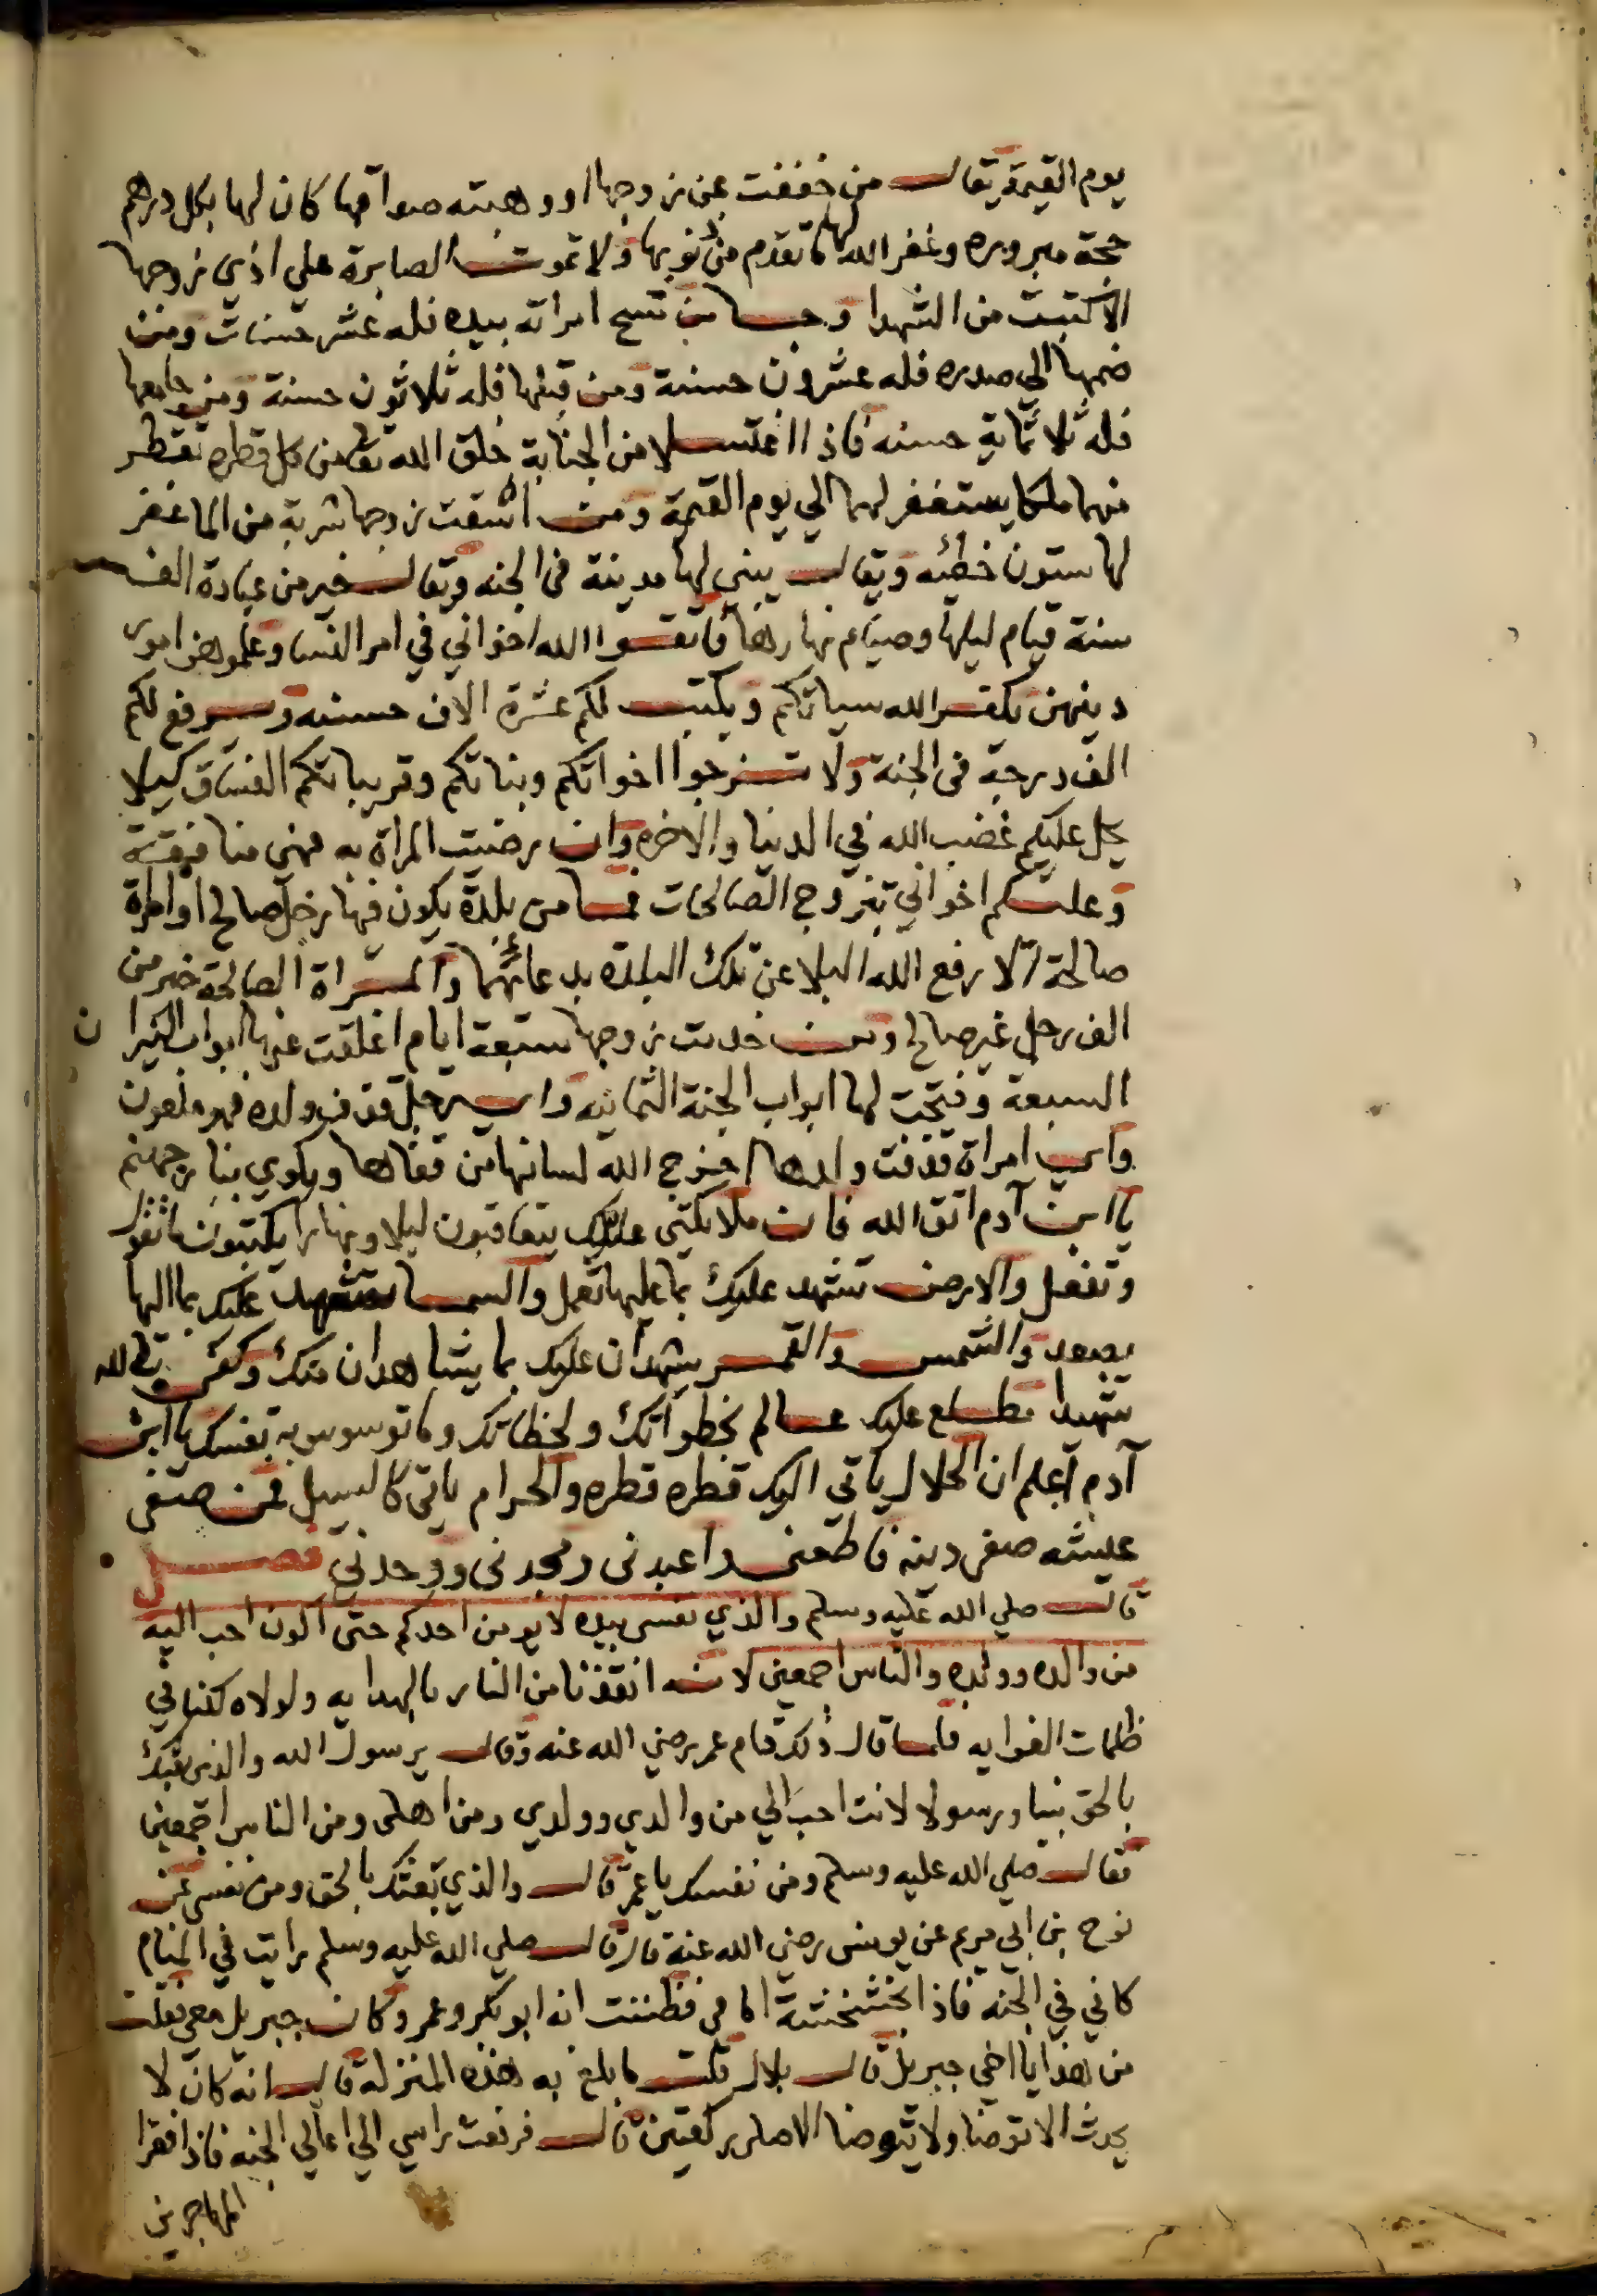 يوم القيمة يقال من خففت عن زوجها او وهبته صداقها كان لها بكل درهم
حجة مبروره وغفر الله لها ما تقدم من ذنوبها ولا تموت الصابرة على اذي زوجها
الا كتبت من الشهدا و من مسح امراته بيده فله عشر حسنات ومن
ضمها الي صدره فله عشرون حسنة ومن قبلها فله ثلاثون حسنة ومن جامعها
فله ثلاثماية حسنه فاذا اغتسلا من الجنابة خلق الله تعالى من كل قطره تقطر
منها ملكا يستغفر لهما الي يوم القيمة ومن اسقت زوجها شربة من الما غفر
لها ستون خطئه ويقال يبني لها مدينة في الجنه ويقال خير من عبادة الف
سنة قيام ليلها وصيام نهارها فاتقوا الله اخواني في امر النسا وعلموهن امور
دينهن يكفر الله سياتكم ويكتب لكم عشرة الاف حسنه ويرفع لكم
الف درجة في الجنة ولا تزوجوا اخواتكم وبناتكم وقريباتكم الفساق كيلا
يحل عليكم غضب الله في الدنيا والاخره وان رضيت المراة به فهي منافقة
وعليكم اخواني بتزوج الصالحات فما من بلدة يكون فيها رجل صالح او امراة
صالحة الا رفع الله البلا عن تلك البلده بدعائهما والمراة الصالحة خير من
الف رجل غير صالح ومن خدمت زوجها سبعة ايام اغلقت عنها ابواب النيران
السبعة وفتحت لها ابواب الجنة الثمانيه واي رجل قذف ولده فهو ملعون
واي امراة قذفت ولدها اخرج الله لسانها من قفاها ويكوي بنار جهنم
يا ابن آدم اتق الله فان ملائكتي عليك يتعاقبون ليلا ونهارا يكتبون ما تقول
وتفعل والارض تشهد عليك بما عليها تعمل والسما تشهد عليك بما اليها
يصعد والشمس والقمر يشهدان عليك بما يشاهدان منك وكفى بالله
شهيدا مطلع عليك عالم بخطواتك ولحظاتك وما توسوس به نفسك يا ابن
آدم اعلم ان الحلال ياتي اليك قطره قطره والحرام ياتي كالسيل فمن صفى
عيشه صفى دينه فاطعنى واعبدنى ومجدنى ووحدني فصل
قال صلي الله عليه وسلم والذي نفسي بيده لا يومن احدكم حتى اكون احب اليه
من والده وولده والناس اجمعين لانه انقذنا من النار بالهدايه ولولاه كنا في
ظلمات الغوايه فلما قال ذلك قام عمر رضي الله عنه وقال يرسول الله والذي بعثك
بالحق نبيا ورسولا لانت احب الي من والدي وولدي ومن اهلى ومن الناس اجمعين
فقال صلي الله عليه وسلم ومن نفسك يا عمر قال والذي بعثك بالحق ومن نفسى عن
نوح بن ابي مريم عن يونس رضي الله عنه قال قال صلي الله عليه وسلم رايت في المنام
كاني في الجنه فاذا بخشخشة امامى فظننت انه ابو بكر وعمر وكان جبريل معي فقلت
من هذا يا اخي جبريل قال بلال قلت ما بلغ به هذه المنزلة قال انه كان لا
يحدث الا توضا ولا يتوضا الا صلى ركعتين قال فرفعت راسي الي اعالي الجنه فاذا فقرا
المهاجرين